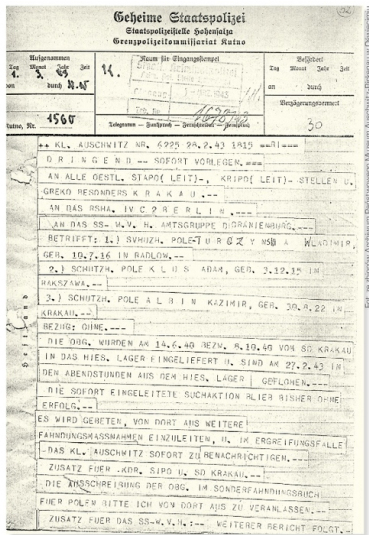 Geheime Staatspolizei
Staatspolizeistelle Hohensalza
Grenzpolizeikommissariat Kutno
Aufgenommen
Tag Monat Jahr Zeit
1. 3. 43
durch
Raum für Eingangsstempel
Befördert
Tag Monat Jahr Zeit
an durch
Verzögerungsvermerk
30
Nr. 1560
Telegramm — Funkspruch — Fernschreiben — Fernspruch
++ KL. AUSCHWITZ NR. 6225 28.2.43 1815 ==
D R I N G E N D -- SOFORT VORLEGEN.===
AN ALLE OESTL. STAPO( LEIT)-, KRIPO( LEIT)- STELLEN U.
GREKO BESONDERS K R A K A U.--
AN DAS RSHA. IV C 2 B E R L I N.---
AN DAS SS- W.V. H. AMTSGRUPPE D ORANIENBURG.--
BETRIFFT: 1.) POLE WLADIMIR,
GEB. 10.7.16 IN RADLOW.--
2.) SCHUTZH. POLE K L U S ADAM, GEB. 3.12.15 IN
WARSZAWA.--
3.) SCHUTZH. POLE A L B I N KAZIMIR, GEB. 30.8.22 IN
KRAKAU.--
BEZUG: OHNE.---
DIE OBG. WURDEN AM 14.6.40 BEZW. 8.10.40 VON SD KRAKAU
IN DAS HIES. LAGER EINGELIEFERT U. SIND AM 27.2.43 IN
DEN ABENDSTUNDEN AUS DEM HIES. LAGER GEFLOHEN.---
DIE SOFORT EINGELEITETE SUCHAKTION BLIEB BISHER OHNE
ERFOLG.--
ES WIRD GEBETEN, VON DORT AUS WEITERE
FAHNDUNGSMASSNAHMEN EINZULEITEN, U. IM ERGREIFUNGSFALLE
DAS KL. AUSCHWITZ SOFORT ZU BENACHRICHTIGEN.--
ZUSATZ FUER -KDR. SIPO U. SD KRAKAU.--
DIE AUSSCHREIBUNG DER OBG. IM SONDERFAHNDUNGSBUCH
FUER POLEN BITTE ICH VON DORT AUS ZU VERANLASSEN.--
ZUSATZ FUER DAS SS-W.V.H.:-- WEITERER BERICHT FOLGT.-